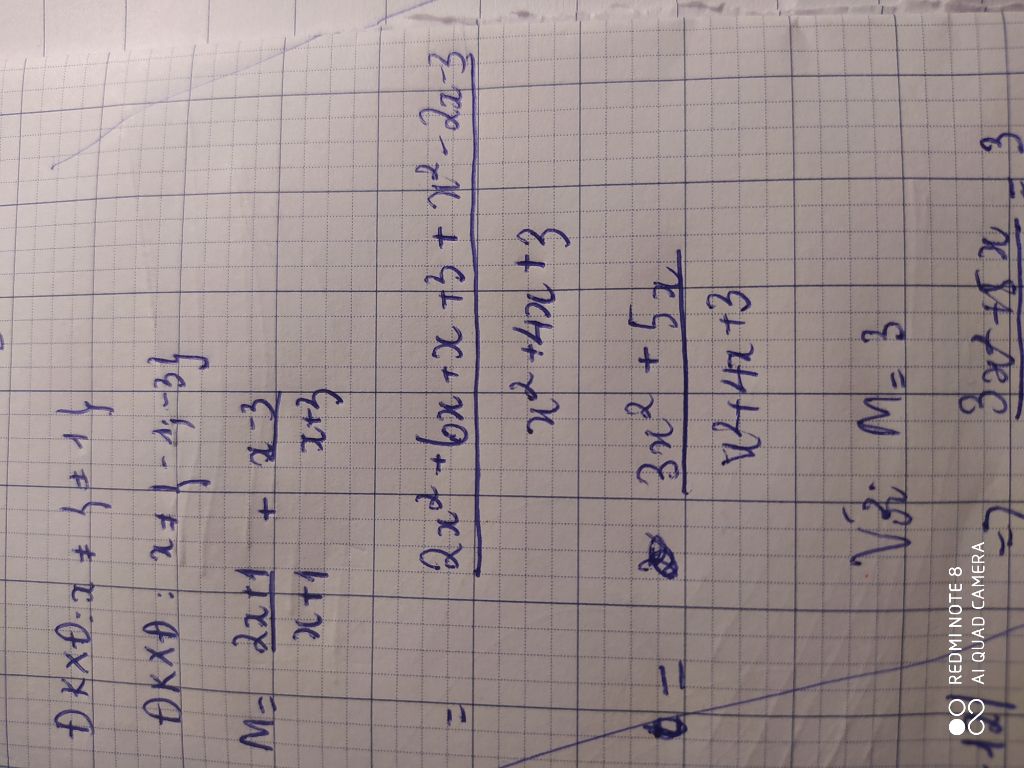 ĐKXĐ: x ≠ { ± 1 }
ĐKXĐ: x ≠ { -1; -3 }
M = \frac{2x+1}{x+1} + \frac{x-3}{x+3}
= \frac{2x² + 6x + x + 3 + x² - 2x - 3}{x² + 4x + 3}
= \frac{3x² + 5x}{x² + 4x + 3}
Vì: M = 3
=> \frac{3x² + 5x}{} = 3
REDMI NOTE 8
AI QUAD CAMERA